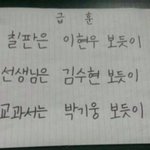 급훈
칠판은 이현우 보듯이
선생님은 김수현 보듯이
교과서는 박기웅 보듯이